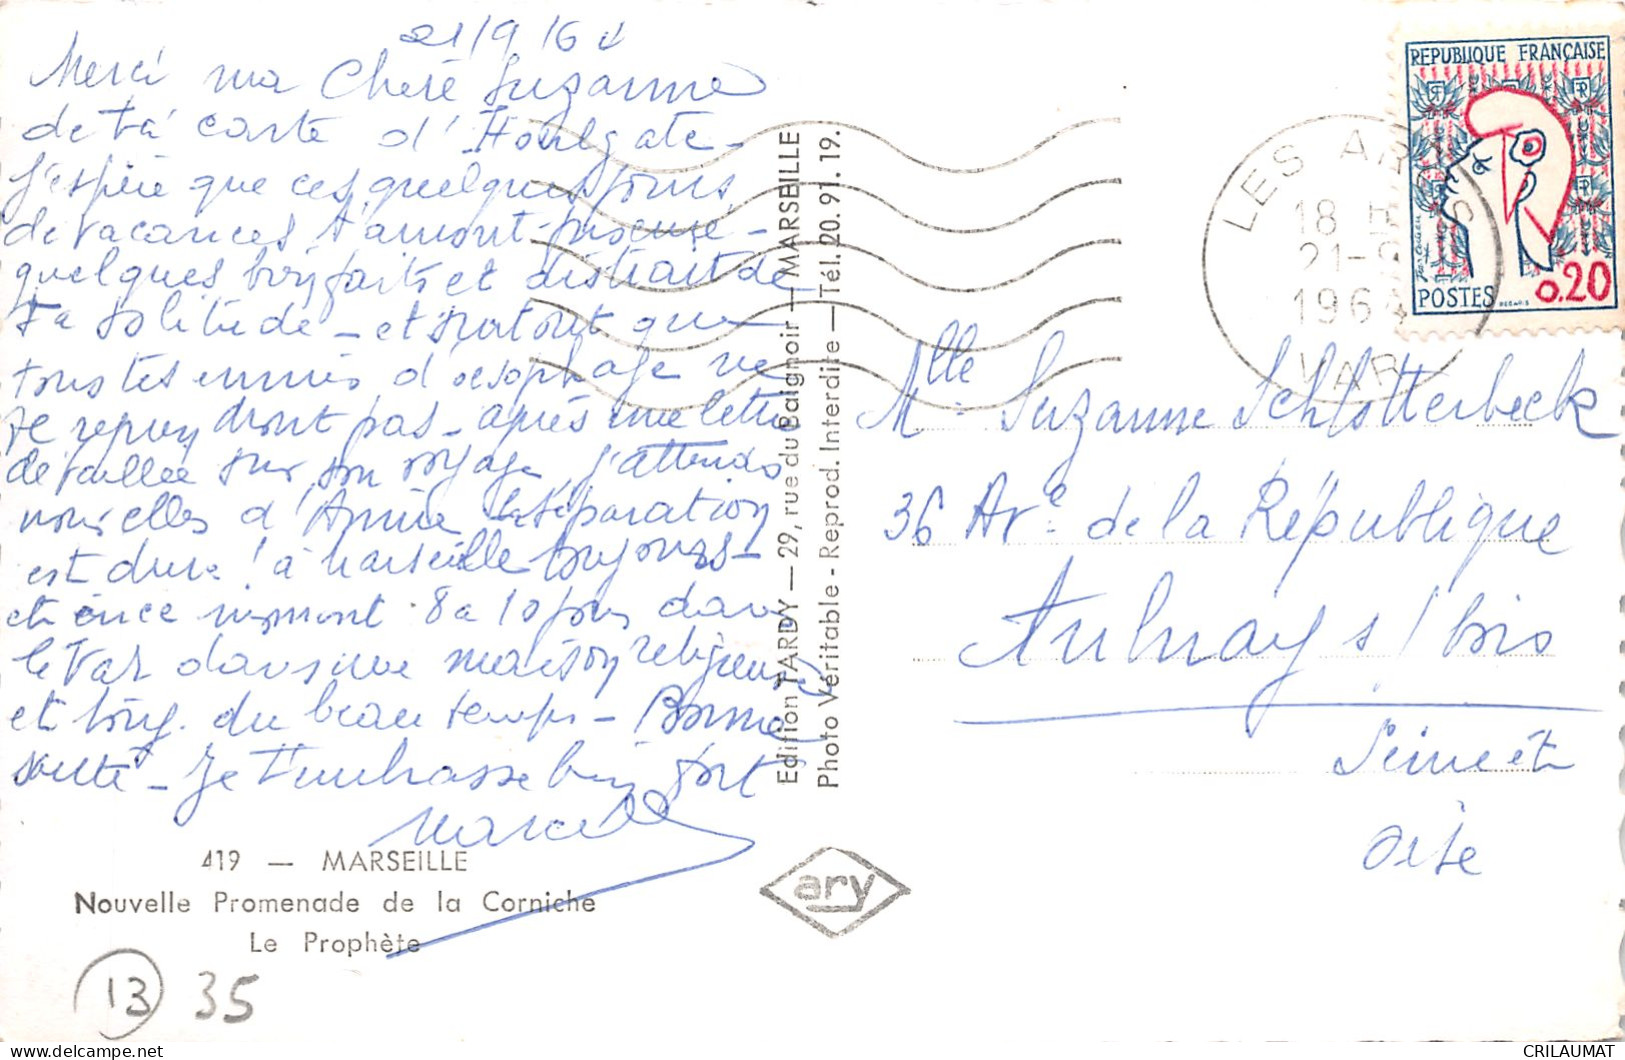 21/9/64
Merci ma Chère Suzanne
de ta carte d'Houlgate -
J'espère que ces quelques jours
de vacances t'auront procuré -
quelques bienfaits et distrait de
ta solitude - et surtout que
tous tes ennuis d'oesophage ne
te reprendront pas - après une lettre
détaillée sur son voyage j'attends
nouvelles d'Annie la séparation
est dure ! à Marseille toujours -
et 8 a 10 jours dans
le Var dans une maison religieuse
et du beau temps - Bonne
santé - Je t'embrasse bien fort
419 — MARSEILLE
Nouvelle Promenade de la Corniche
Le Prophète
13 35
Edition TARDY — 29, rue du Baignoir — MARSEILLE
Photo Véritable - Reprod. Interdite — Tél. 20.91.19.
ary
LES ARCS
18 H
21-9
1964
VAR
REPUBLIQUE FRANÇAISE
RF
POSTES
0.20
Mlle Suzanne Schlotterbeck
36 Ave de la République
Aulnay s/ bois
Seine et
Oise
delcampe.net
CRILAUMAT